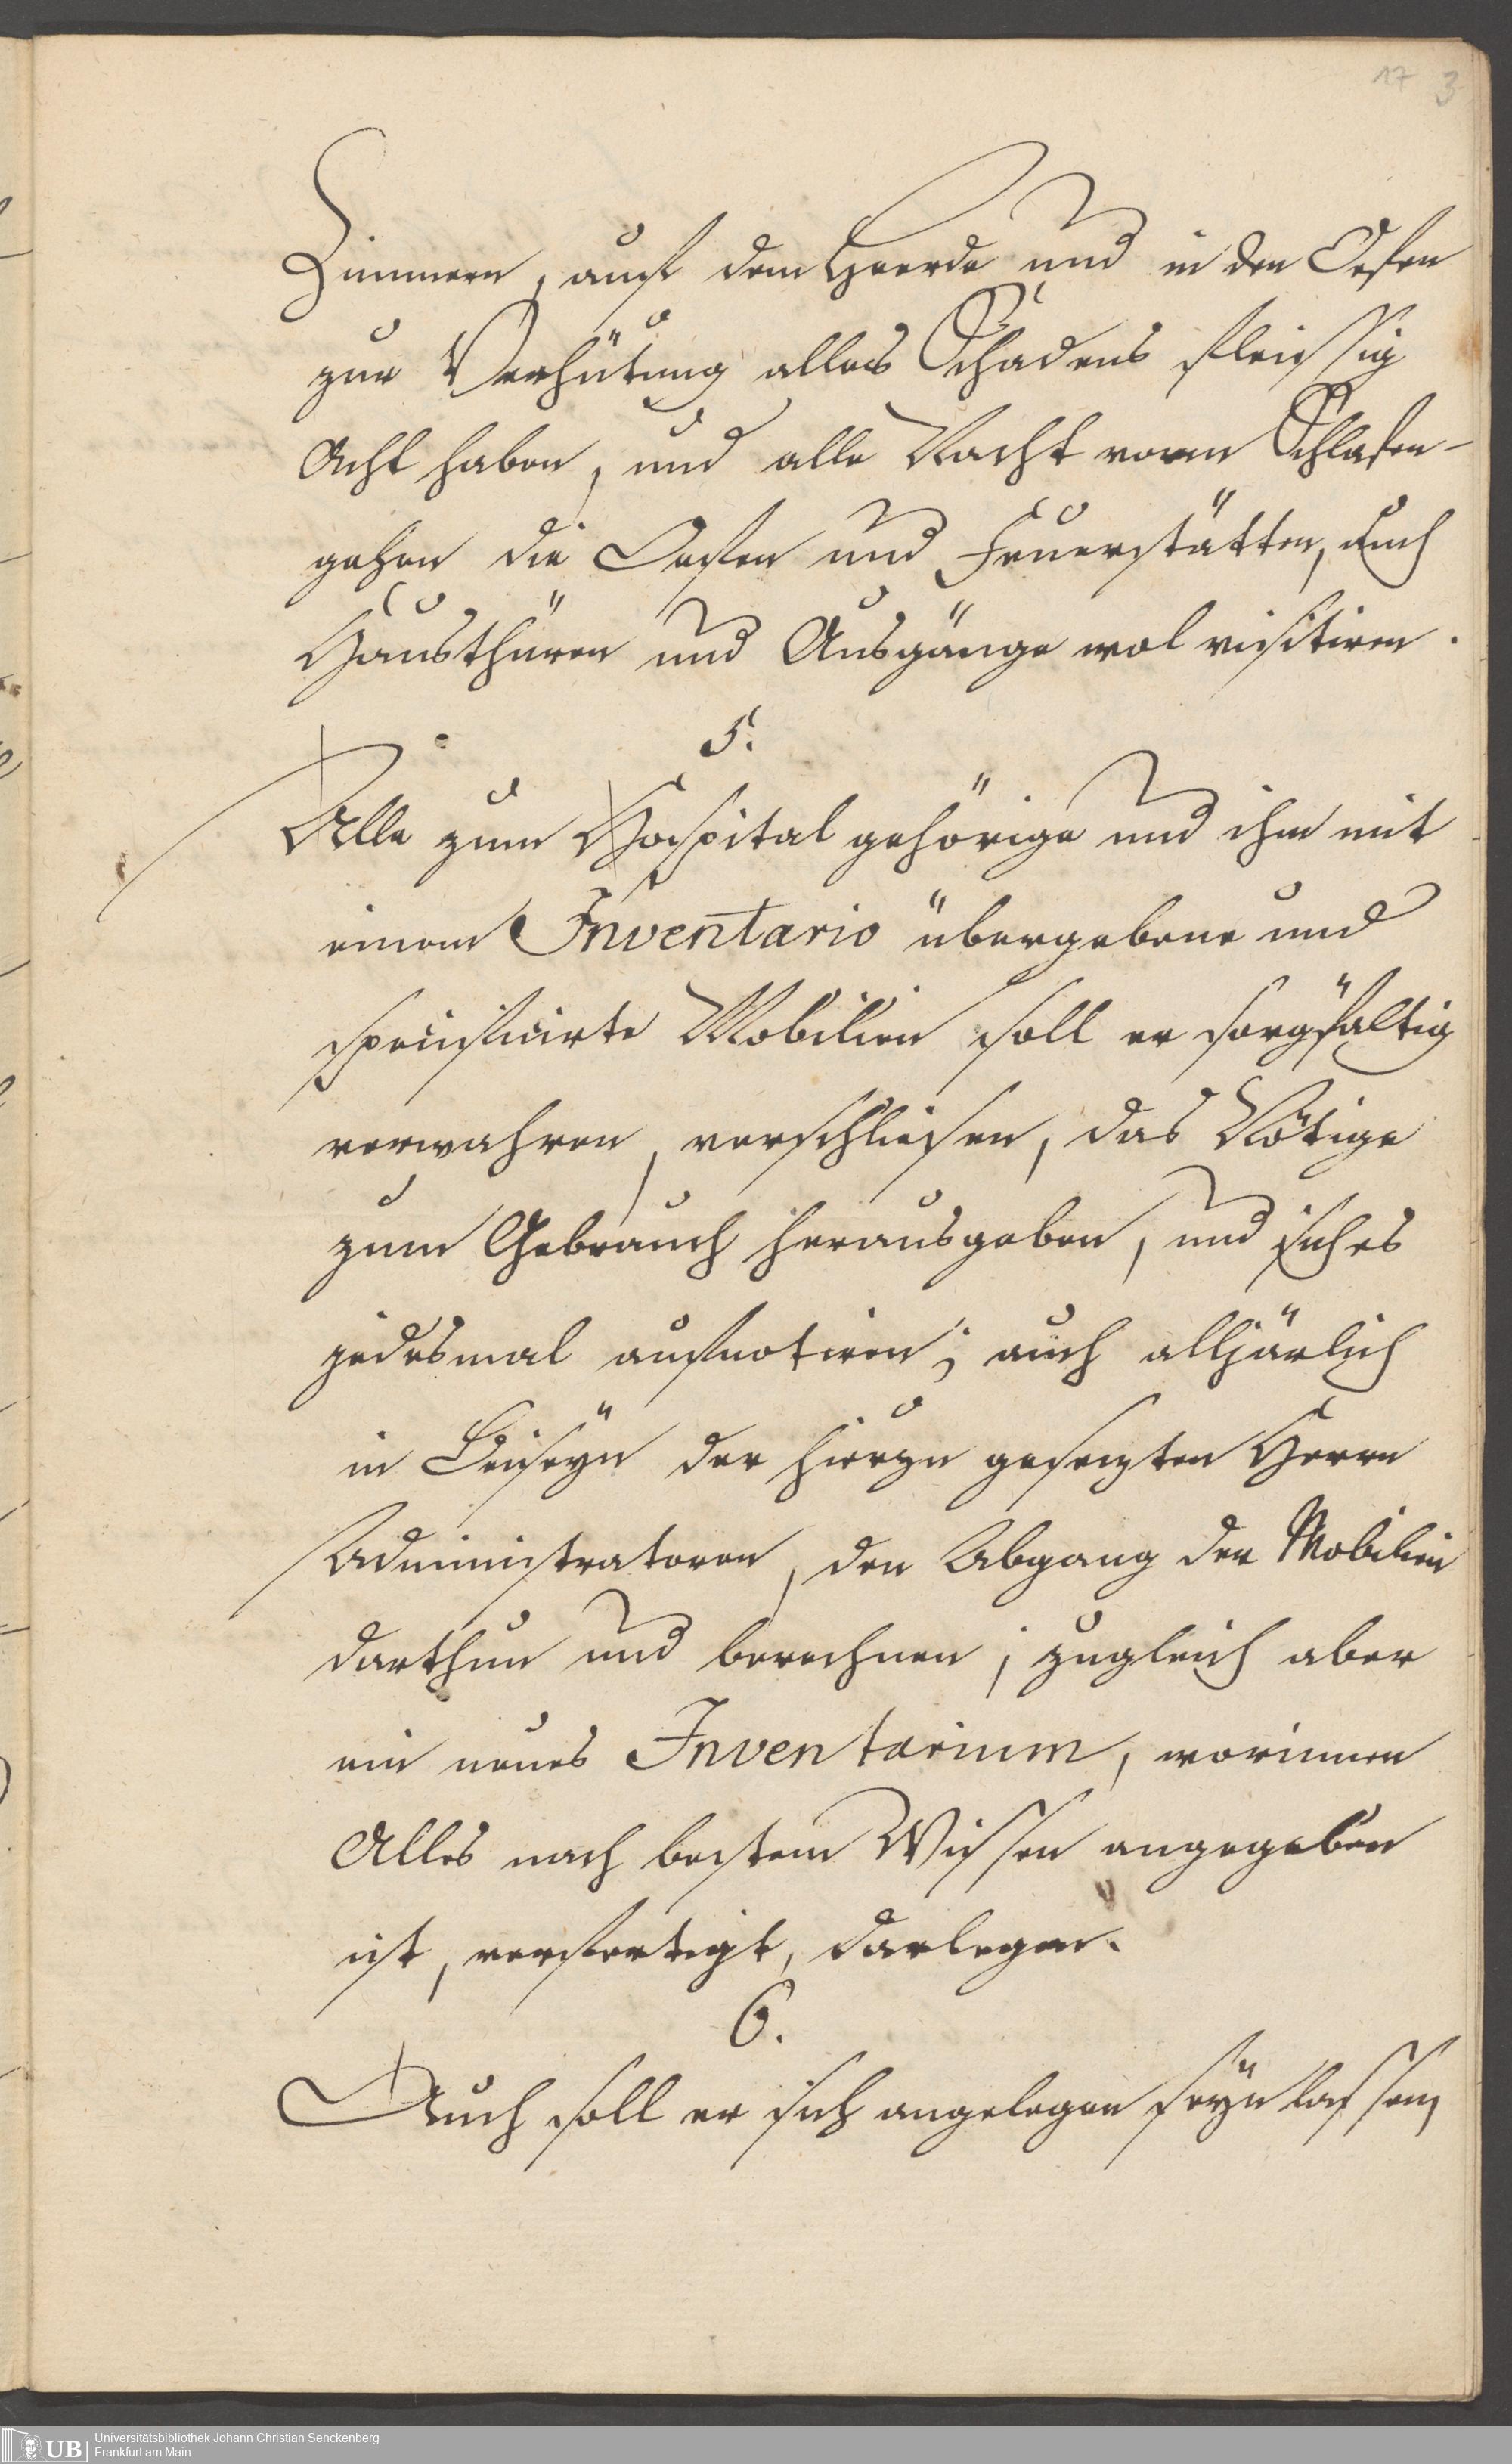 17 3
Zimmern, auf dem Heerde und in den Oefen
zur Verhütung alles Schadens fleissig
Acht haben, und alle Nacht vorm Schlafen-
gehen die Oefen und Feuerstätten, auch
Hausthüren und Ausgänge wol visitiren.
5.
Alle zum Hospital gehörige und ihm mit
einem Inventario übergebene und
specificirte Mobilien soll er sorgfältig
verwahren, verschliesen, das Nötige
zum Gebrauch herausgeben, und sich es
jedesmal aufnotiren; auch alljärlich
in Beiseyn der hierzu gesezten Herrn
Administratoren, den Abgang der Mobilien
darthun und berechnen; zugleich aber
ein neues Inventarium, worinnen
Alles nach bestem Wissen angegeben
ist, verfertigt, darlegen.
6.
Auch soll er sich angelegen seyn lassen,
UB
Universitätsbibliothek Johann Christian Senckenberg
Frankfurt am Main